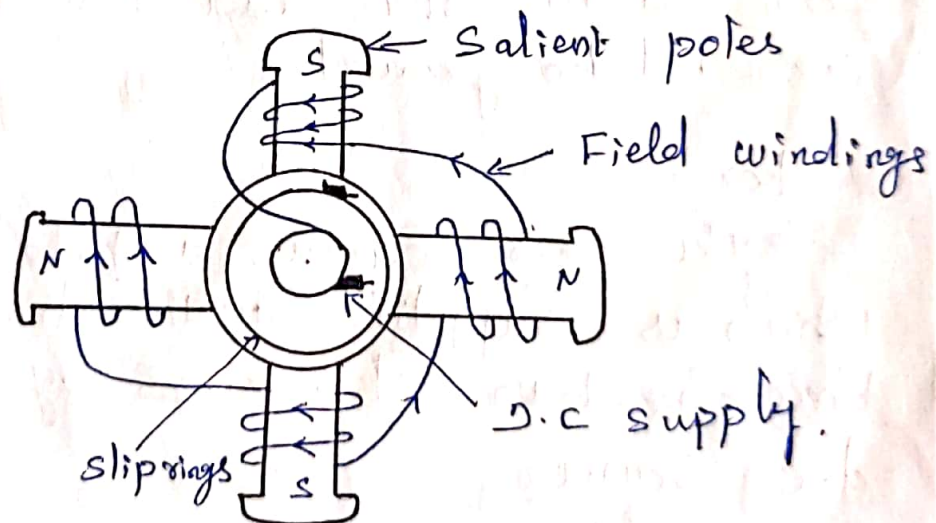 Salient poles
S
Field windings
N
N
D.C supply.
Sliprings
S